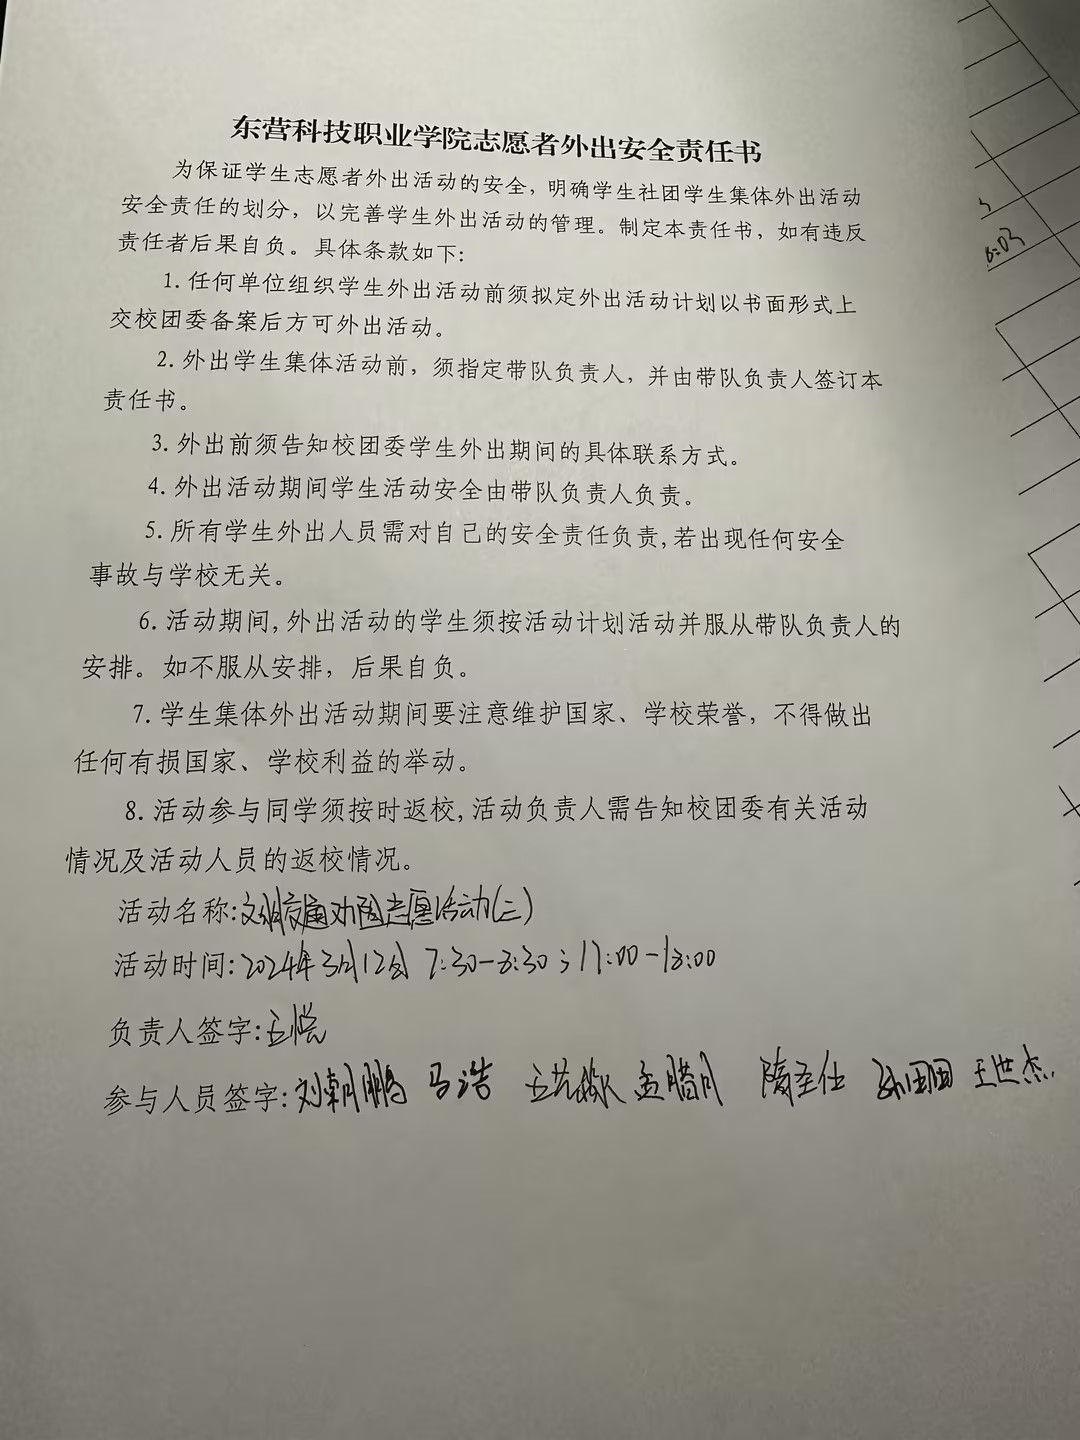 东营科技职业学院志愿者外出安全责任书
为保证学生志愿者外出活动的安全，明确学生社团学生集体外出活动
安全责任的划分，以完善学生外出活动的管理。制定本责任书，如有违反
责任者后果自负。具体条款如下：
1. 任何单位组织学生外出活动前须拟定外出活动计划以书面形式上
交校团委备案后方可外出活动。
2. 外出学生集体活动前，须指定带队负责人，并由带队负责人签订本
责任书。
3. 外出前须告知校团委学生外出期间的具体联系方式。
4. 外出活动期间学生活动安全由带队负责人负责。
5. 所有学生外出人员需对自己的安全责任负责,若出现任何安全
事故与学校无关。
6. 活动期间,外出活动的学生须按活动计划活动并服从带队负责人的
安排。如不服从安排，后果自负。
7. 学生集体外出活动期间要注意维护国家、学校荣誉，不得做出
任何有损国家、学校利益的举动。
8. 活动参与同学须按时返校,活动负责人需告知校团委有关活动
情况及活动人员的返校情况。
活动名称:文明交通劝阻志愿活动(三)
活动时间:2024年3月12日 7:30-8:30；17:00-18:00
负责人签字:王悦
参与人员签字:刘朝鹏 马浩 孟腊月 隋圣仕 王世杰